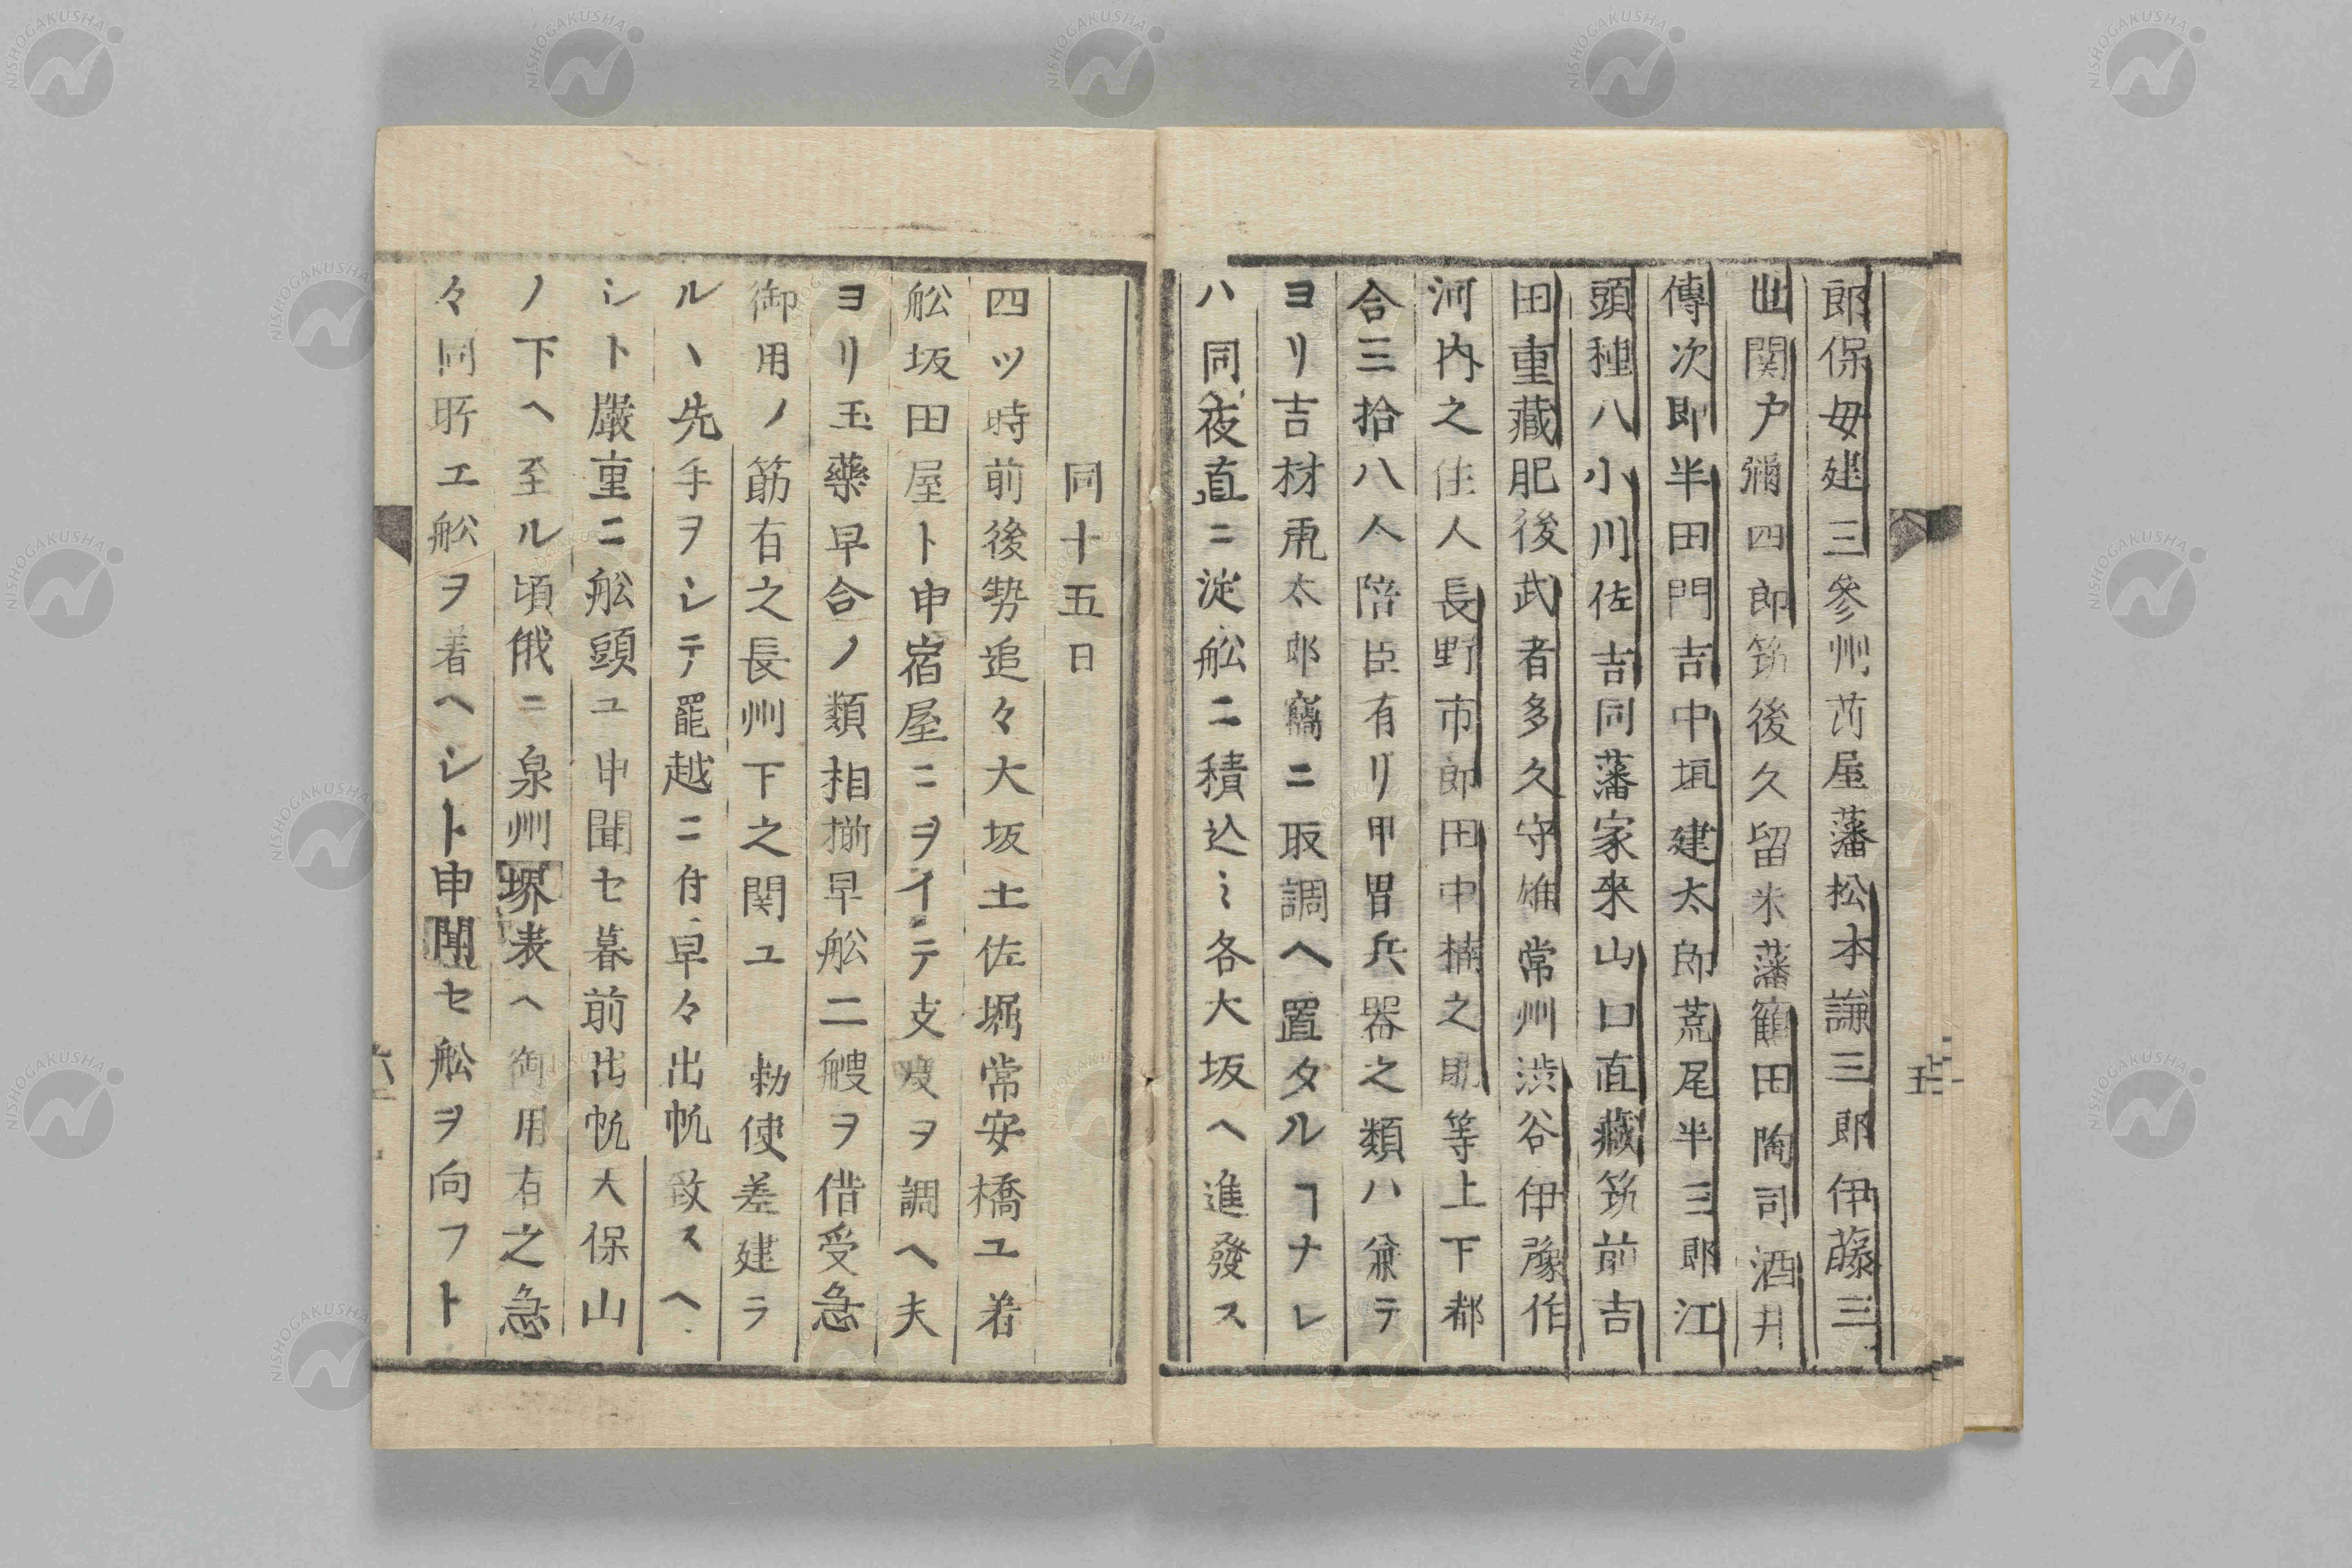 郎保毋建三參州苅屋藩松本謙三郎伊藤三
弥関戸彌四郎筑後久留米藩鶴田陶司酒井
傳次郎半田門吉中垣建太郎荒尾半三郎江
頭種八小川佐吉同藩家來山口直藏筑前吉
田重藏肥後武者多久守雄常州渋谷伊豫作
河内之住人長野市郎田中楠之助等上下都
合三拾八人陪臣有リ甲冑兵器之類ハ兼テ
ヨリ吉村乕太郎竊ニ取調ヘ置タルヿナレ
ハ同夜直ニ淀舩ニ積込ミ各大坂ヘ進發ス
五
同十五日
四ツ時前後勢追々大坂土佐堀常安橋ユ着
舩坂田屋ト申宿屋ニヲイテ支度ヲ調ヘ夫
ヨリ玉藥早合ノ類相揃早舩二艘ヲ借受急
御用ノ筋有之長州下之関ユ 勅使差建ラ
ルヽ先手ヲシテ罷越ニ付早々出帆致スヘ
シト嚴重ニ舩頭ユ申聞セ暮前出帆大保山
ノ下ヘ至ル頃俄ニ泉州堺表ヘ御用有之急
々同所エ舩ヲ着ヘシト申聞セ舩ヲ向フト
六
NISHOGAKUSHA